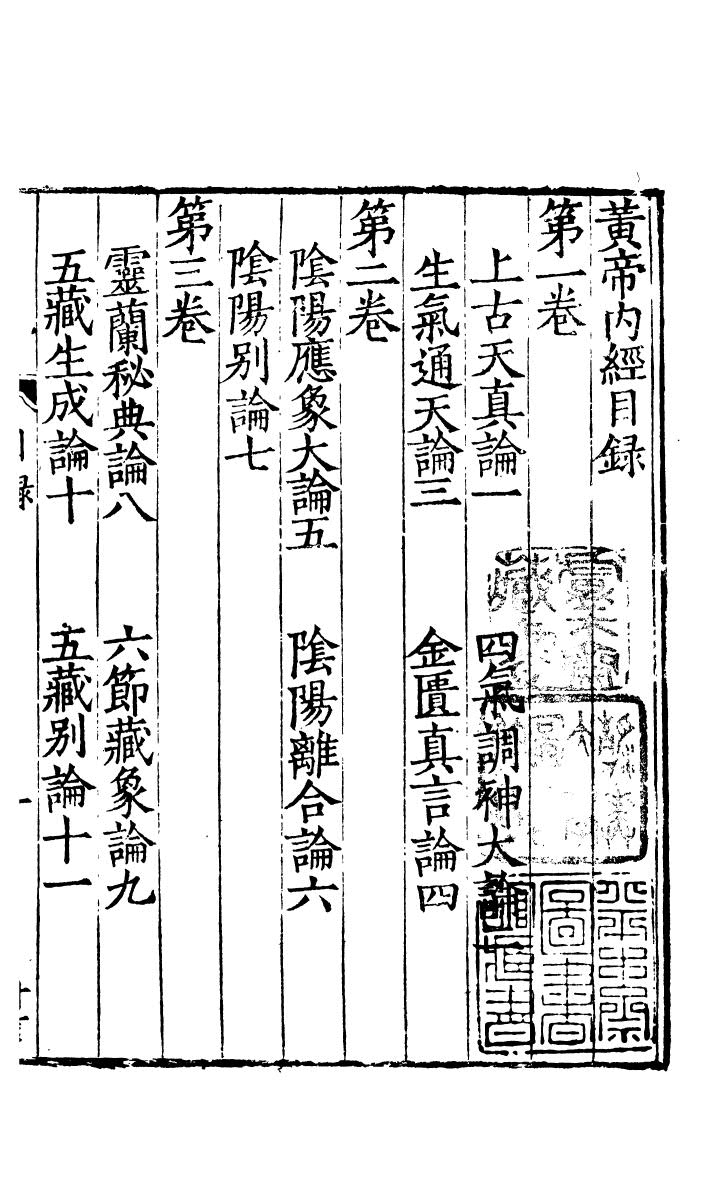 黃帝内經目録
第一卷
上古天真論一　四氣調神大論二
生氣通天論三　金匱真言論四
第二卷
陰陽應象大論五　陰陽離合論六
陰陽别論七
第三卷
靈蘭秘典論八　六節藏象論九
五藏生成論十　五藏别論十一
目録